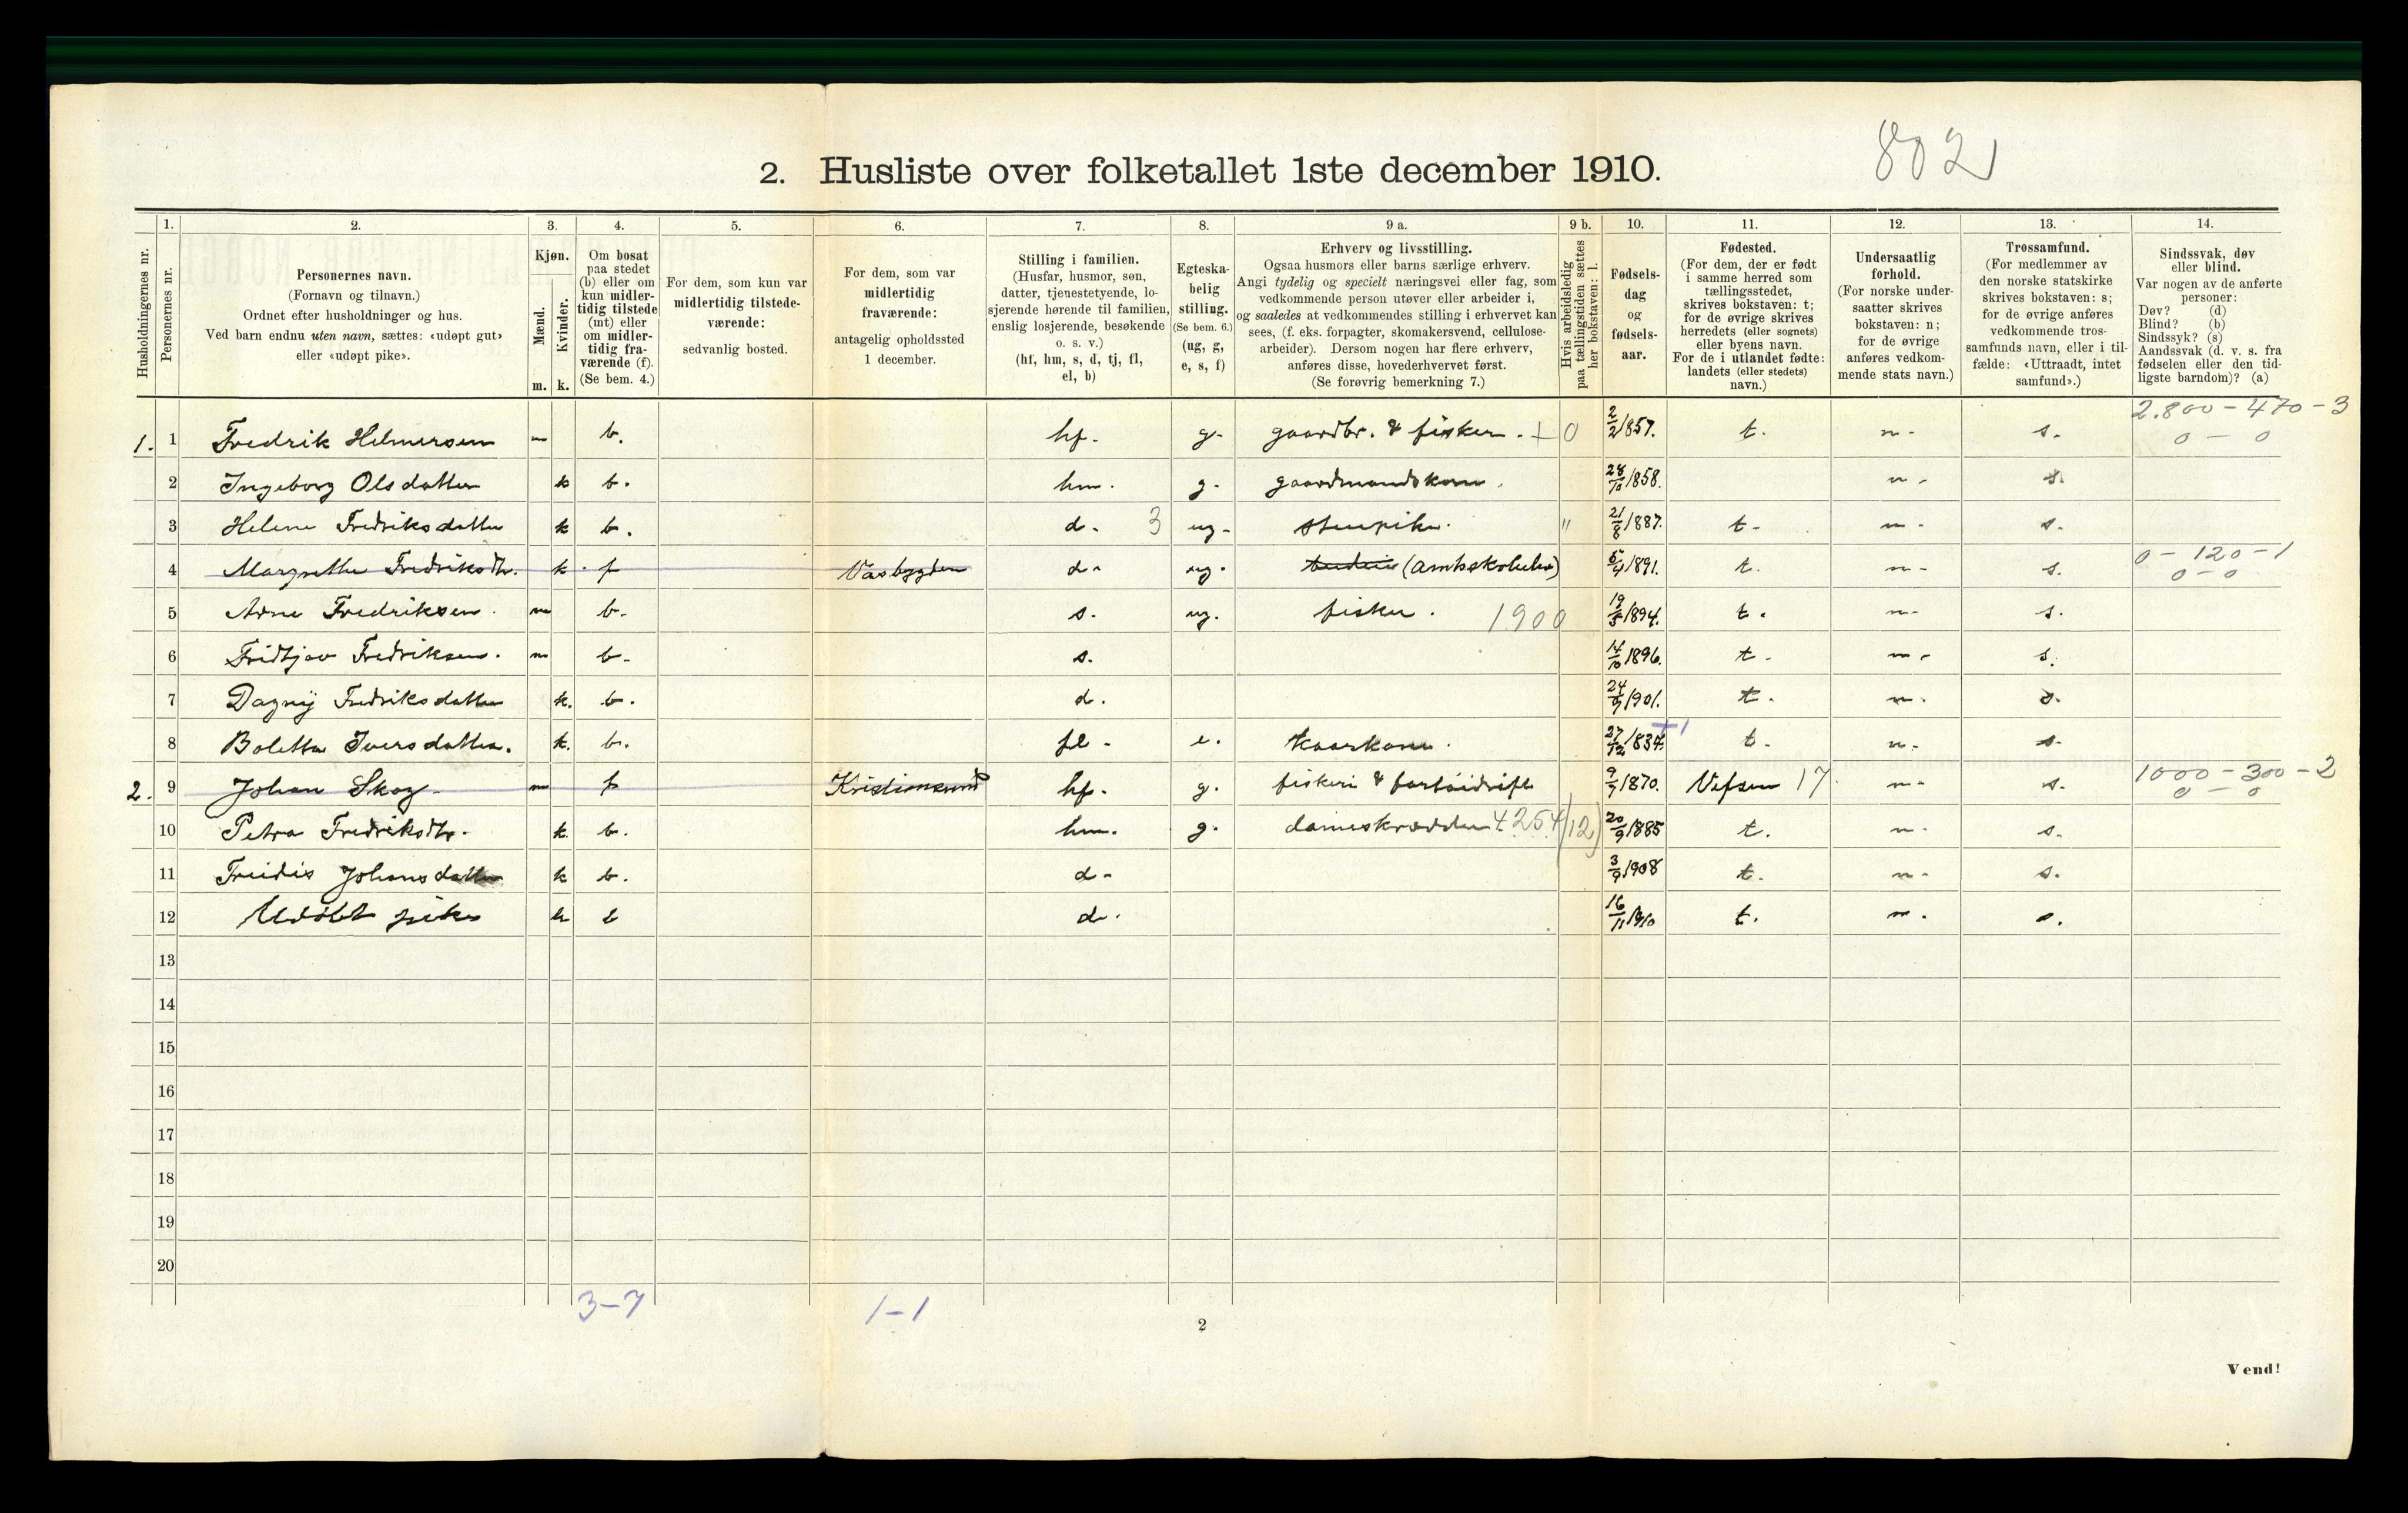 802
2. Husliste over folketallet 1ste december 1910.
Husholdningernes nr.
1.
Personernes nr.
2.
Personernes navn.
(Fornavn og tilnavn.)
Ordnet efter husholdninger og hus.
Ved barn endnu uten navn, sættes: «udøpt gut»
eller «udøpt pike».
3.
Kjøn.
Mænd.
Kvinder.
m. k.
4.
Om bosat
paa stedet
(b) eller om
kun midler-
tidig tilstede
(mt) eller
om midler-
tidig fra-
værende (f).
(Se bem. 4.)
5.
For dem, som kun var
midlertidig tilstede-
værende:
sedvanlig bosted.
6.
For dem, som var
midlertidig
fraværende:
antagelig opholdssted
1 december.
7.
Stilling i familien.
(Husfar, husmor, søn,
datter, tjenestetyende, lo-
sjerende hørende til familien,
enslig losjerende, besøkende
o. s. v.)
(hf, hm, s, d, tj, fl,
el, b)
8.
Egteska-
belig
stilling.
(Se bem. 6.)
(ug, g,
e, s, f)
9 a.
Erhverv og livsstilling.
Ogsaa husmors eller barns særlige erhverv.
Angi tydelig og specielt næringsvei eller fag, som
vedkommende person utøver eller arbeider i,
og saaledes at vedkommendes stilling i erhvervet kan
sees, (f. eks. forpagter, skomakersvend, cellulose-
arbeider). Dersom nogen har flere erhverv,
anføres disse, hovederhvervet først.
(Se forøvrig bemerkning 7.)
9 b.
Hvis arbeidsledig
paa tællingstiden sættes
her bokstaven: l.
10.
Fødsels-
dag
og
fødsels-
aar.
11.
Fødested.
(For dem, der er født
i samme herred som
tællingsstedet,
skrives bokstaven: t;
for de øvrige skrives
herredets (eller sognets)
eller byens navn.
For de i utlandet fødte:
landets (eller stedets)
navn.)
12.
Undersaatlig
forhold.
(For norske under-
saatter skrives
bokstaven: n;
for de øvrige
anføres vedkom-
mende stats navn.)
13.
Trossamfund.
(For medlemmer av
den norske statskirke
skrives bokstaven: s;
for de øvrige anføres
vedkommende tros-
samfunds navn, eller i til-
fælde: «Uttraadt, intet
samfund».)
14.
Sindssvak, døv
eller blind.
Var nogen av de anførte
personer:
Døv? (d)
Blind? (b)
Sindssyk? (s)
Aandssvak (d. v. s. fra
fødselen eller den tid-
ligste barndom)? (a)
2.800 - 470 - 3
1. 1 Fredrik Helmersen m b. hf. g. gaardbr. & fisker. + 0 2/2 1857. t. n. s. 0 - 0
2 Ingeborg Olsdatter k b. hm. g. gaardmandskone. 28/10 1858. n. s.
3 Helene Fredriksdatter k b. d. 3 ug. stuepike. " 21/8 1887. t. n. s.
4 Margrethe Fredriksdtr. k f Vasbygden d. ug. (amtskoleelev) 5/4 1891. t. n. s. 0 - 120 - 1
0 - 0
5 Arne Fredriksen. m b. s. ug. fisker. 1900 19/5 1894. t. n. s.
6 Fridtjov Fredriksen. m b. s. 14/10 1896. t. n. s.
7 Dagny Fredriksdatter k. b. d. 24/9 1901. t. n. s.
8 Boletta Iversdatter. k. b. fl. e. kaarkone. 27/12 1834. +1 t. n. s.
2. 9 Johan Skog m f Kristiansund hf. g. fiskeri & fartøidrift 9/7 1870. Vefsen 17 n. s. 1000 - 300 - 2
0 - 0
10 Petra Fredriksdtr. k. b. hm. g. dameskrædder 4254 (12) 20/9 1885 t. n. s.
11 Freidis Johansdatter k b. d. 3/9 1908 t. n. s.
12 Udøbt pike k b d. 16/11 1910 t. n. s.
13
14
15
16
17
18
19
20
3-7
1-1
2
Vend!